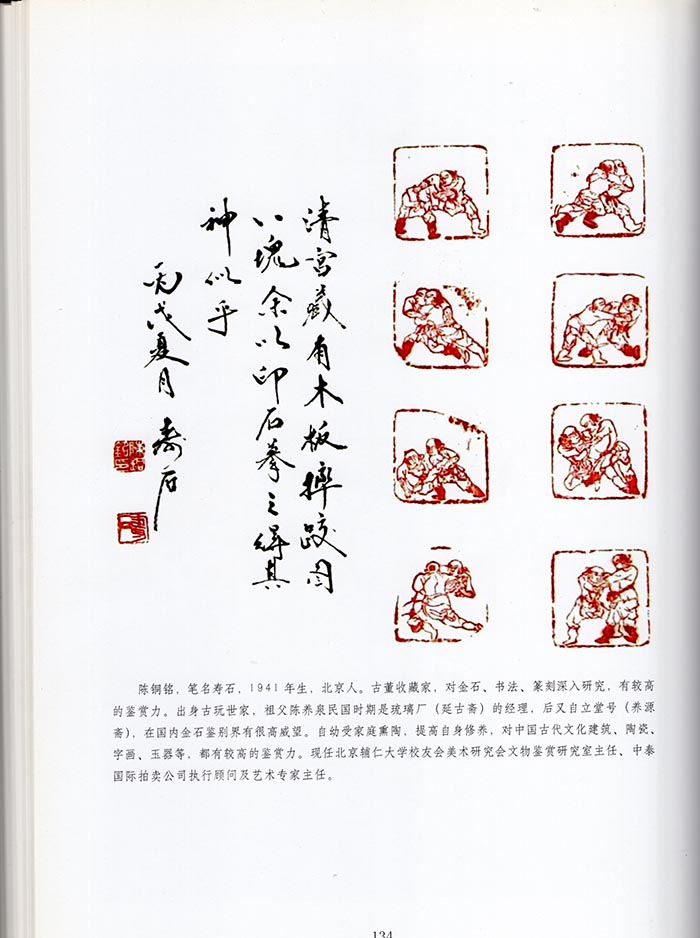 清宫藏有木板摔跤图
八塊余以印石摹之得其
神似乎
丙戌夏月 寿石
陈铜铭，笔名寿石，1941年生，北京人。古董收藏家，对金石、书法、篆刻深入研究，有较高
的鉴赏力。出身古玩世家，祖父陈养泉民国时期是琉璃厂（延古斋）的经理，后又自立堂号（养源
斋），在国内金石鉴别界有很高威望。自幼受家庭熏陶，提高自身修养，对中国古代文化建筑、陶瓷、
字画、玉器等，都有较高的鉴赏力。现任北京辅仁大学校友会美术研究会文物鉴赏研究室主任、中泰
国际拍卖公司执行顾问及艺术专家主任。
134